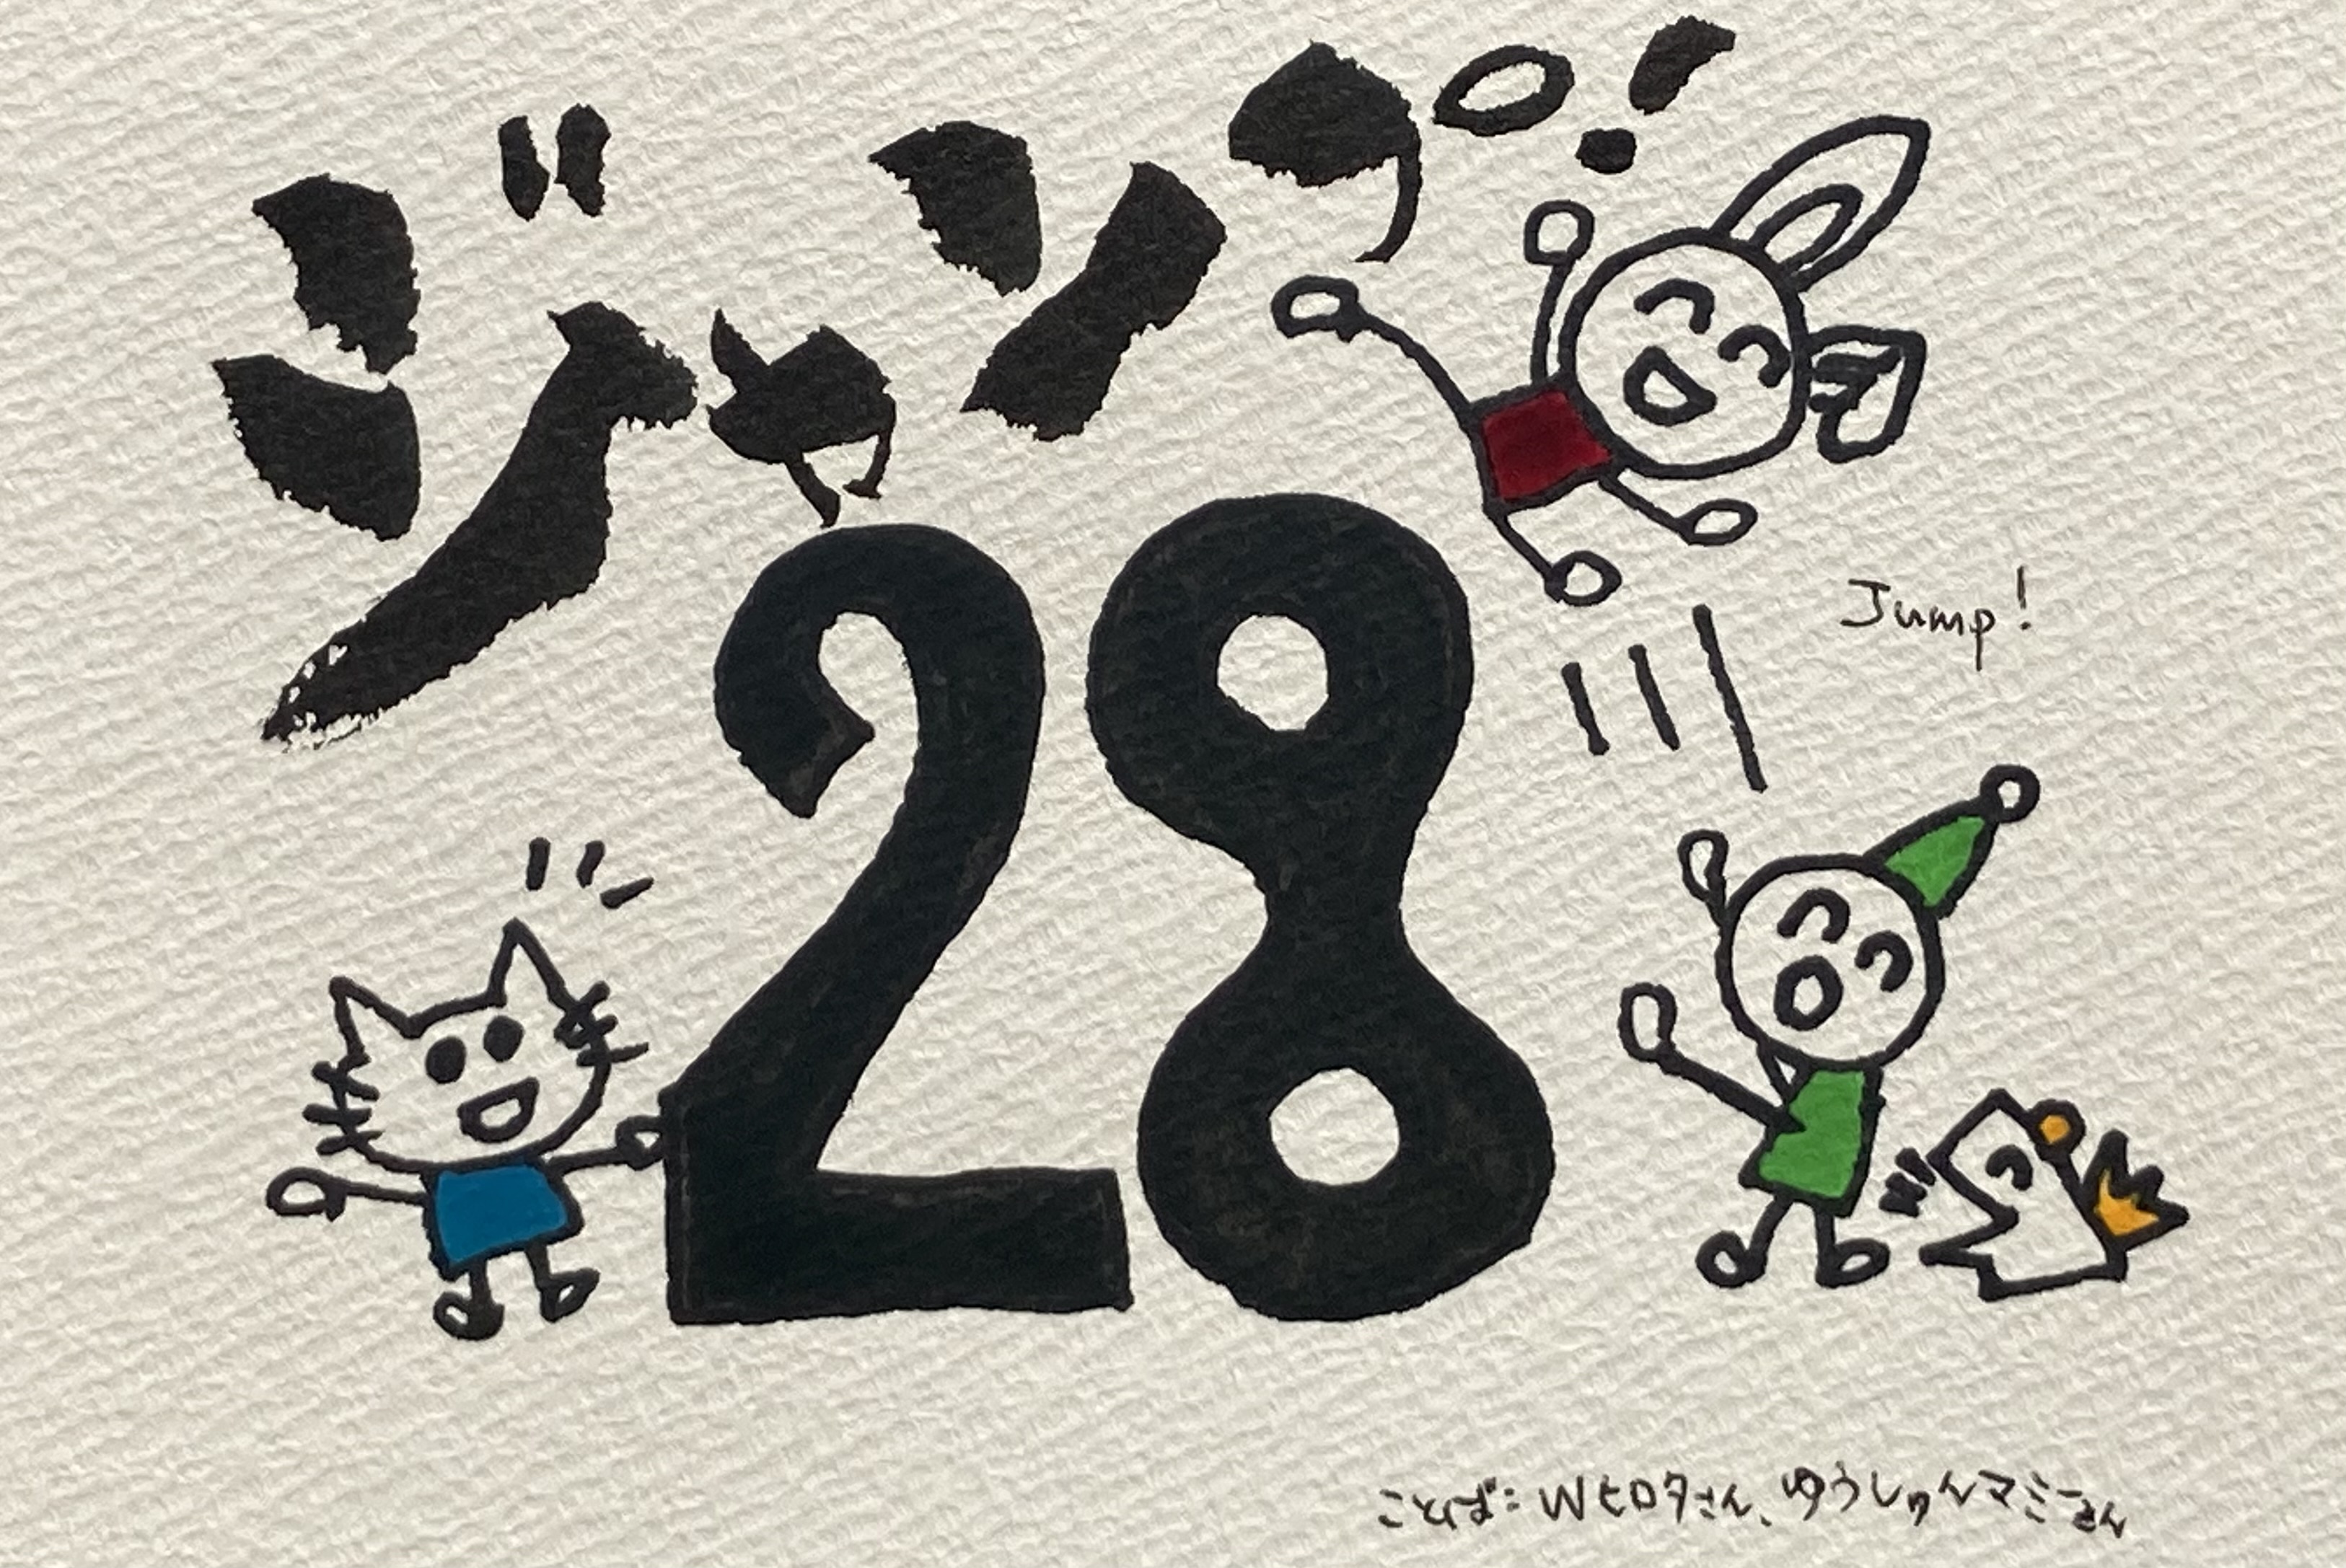 ジャンプ!
28
Jump!
ことば:Wヒロタさん、ゆうしゅんマミーさん